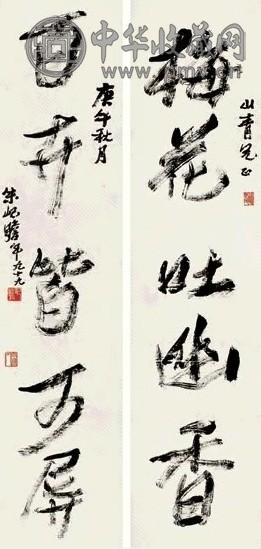 中华收藏网
山青兄正
梅花吐幽香
庚午秋月
百卉皆可屏
朱屺瞻年九十九